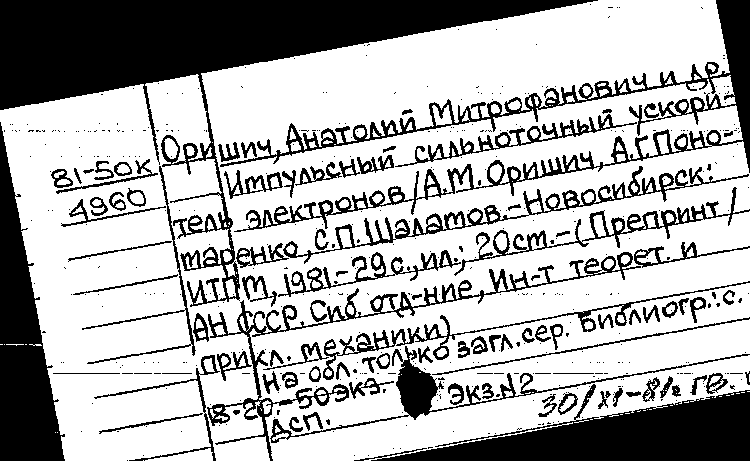 81-50к
4960
Оришич, Анатолий Митрофанович и др.
Импульсный сильноточный ускори-
тель электронов / А.М. Оришич, А.Г. Поно-
маренко, С.П. Шалатов. - Новосибирск:
ИТПМ, 1981. - 29 с., ил.; 20 см. - (Препринт /
АН СССР. Сиб. отд-ние, Ин-т теорет. и
прикл. механики).
На обл. только загл. сер. Библиогр.: с.
-20. - 50 экз. Экз. N2
ДСП.
30/XI-81г.